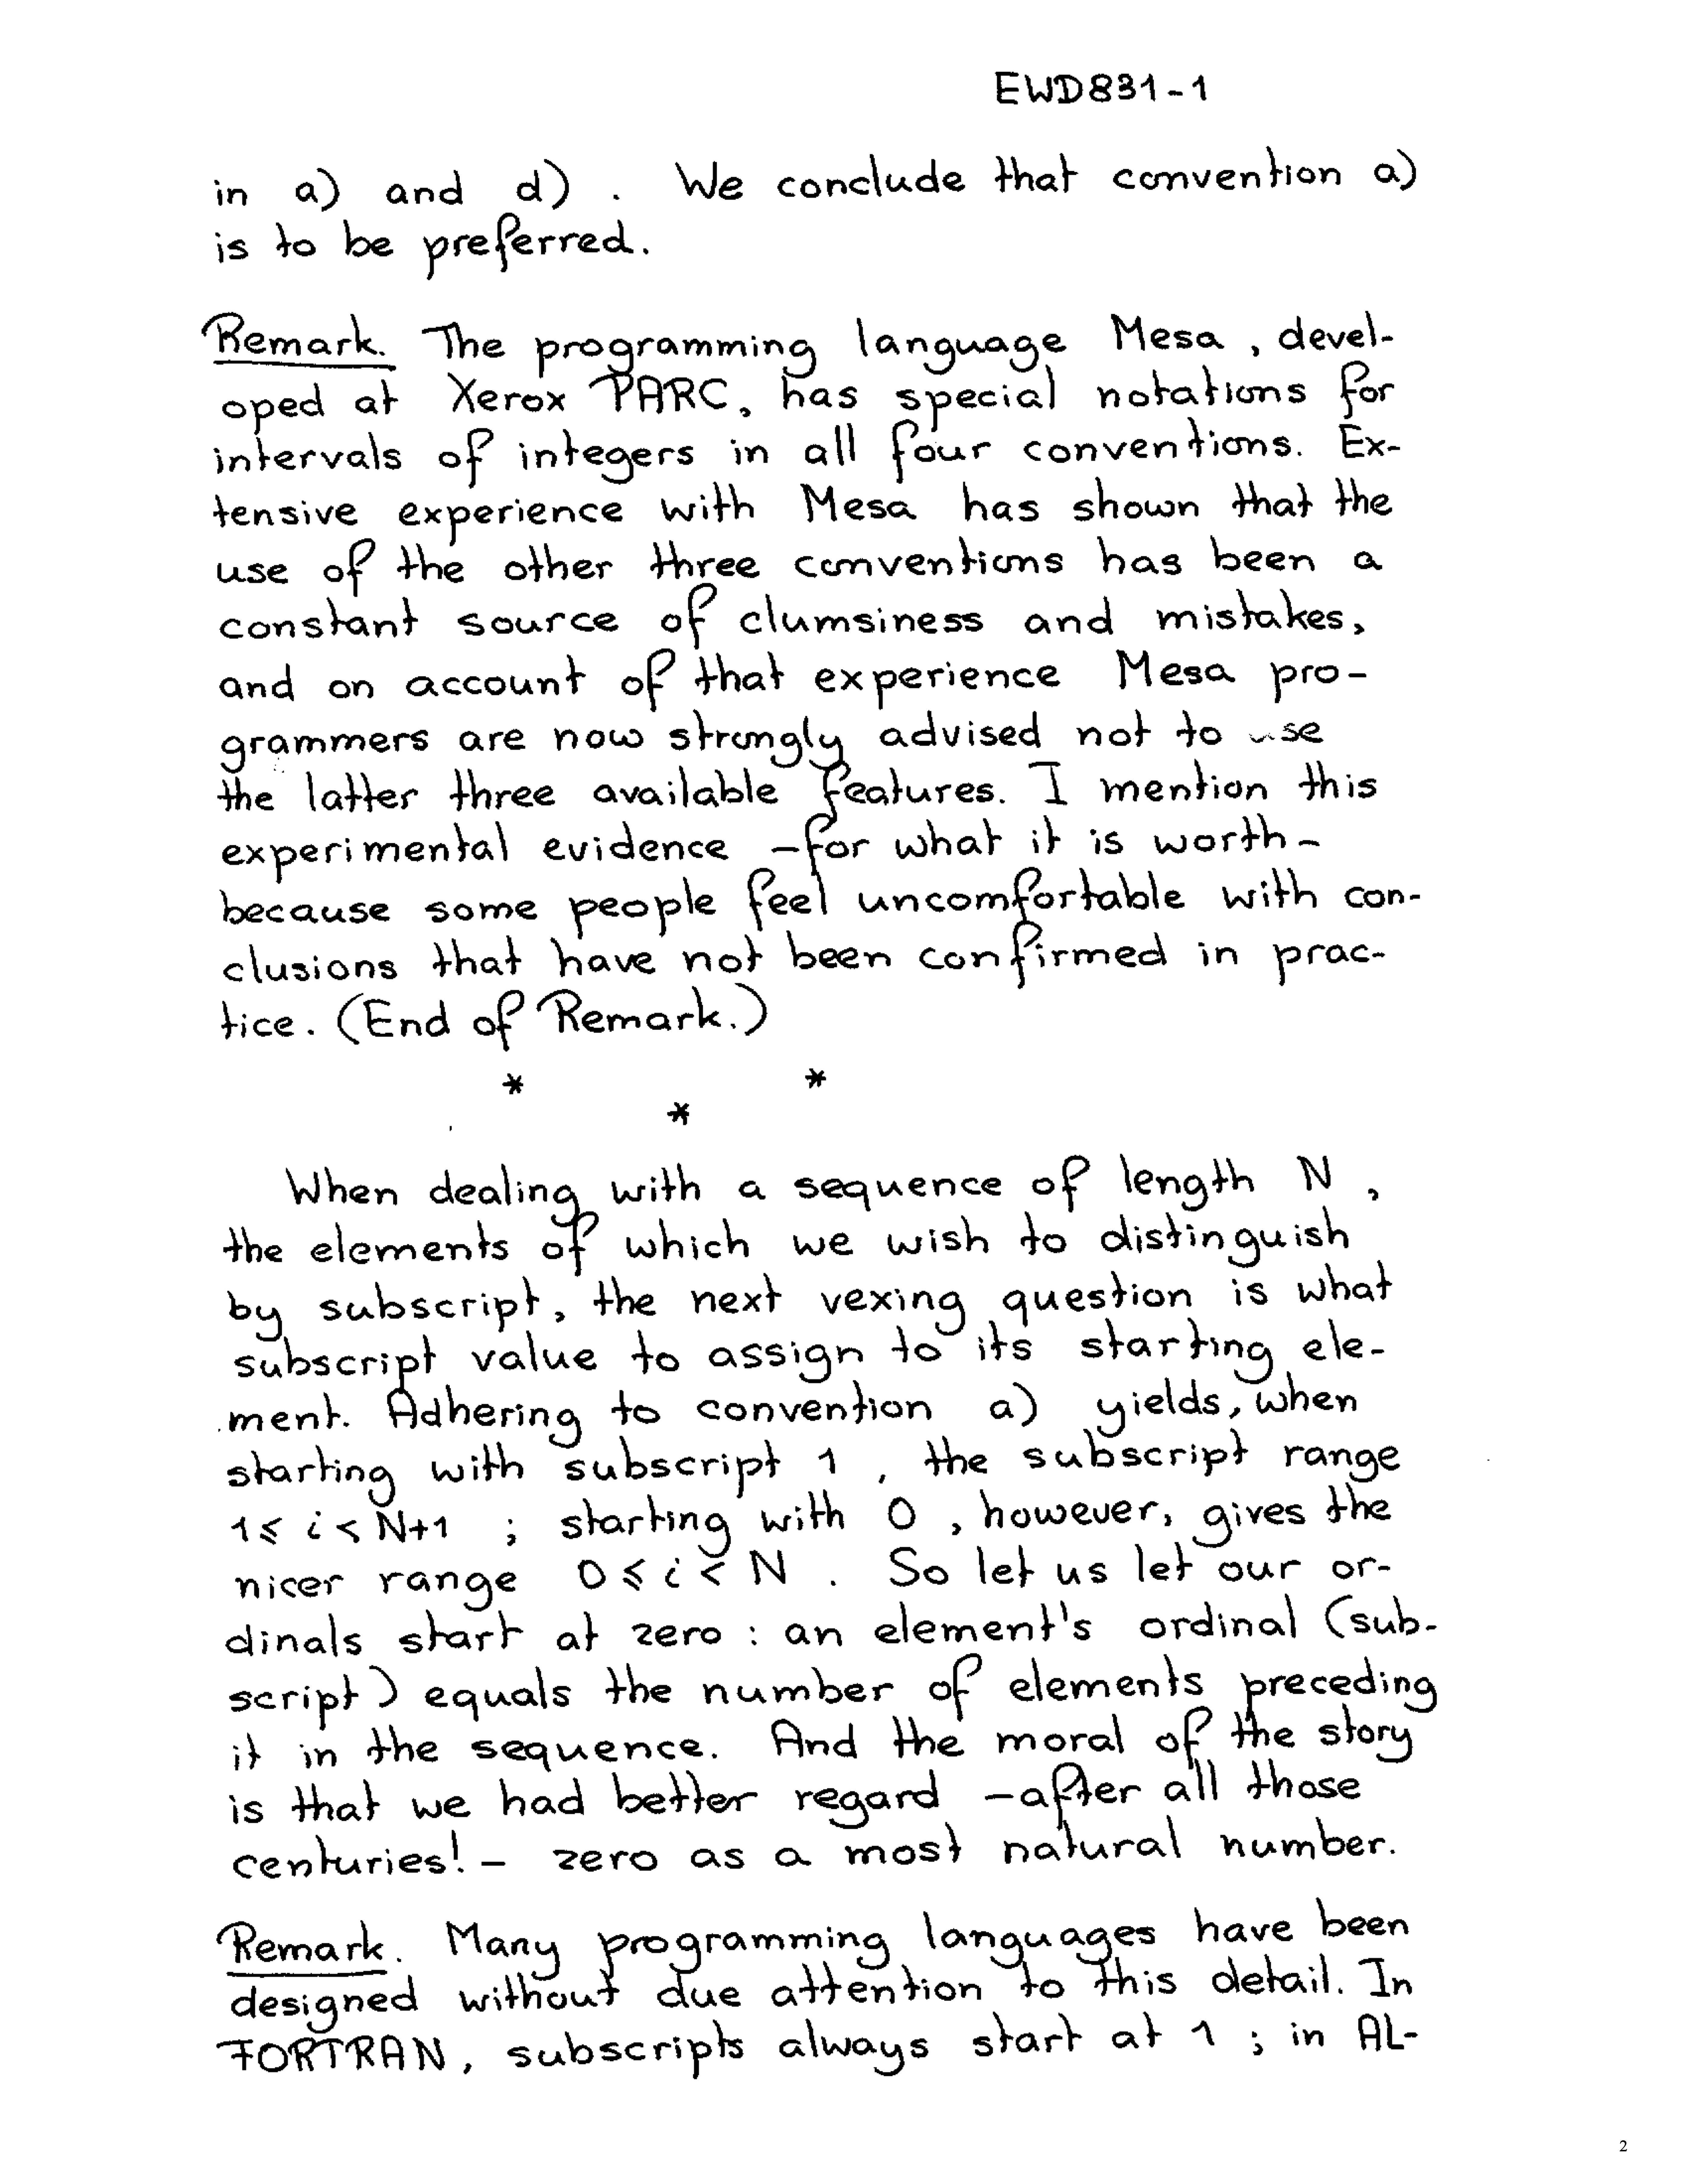 EWD831-1
in a) and d) . We conclude that convention a)
is to be preferred.
Remark. The programming language Mesa, devel-
oped at Xerox PARC, has special notations for
intervals of integers in all four conventions. Ex-
tensive experience with Mesa has shown that the
use of the other three conventions has been a
constant source of clumsiness and mistakes,
and on account of that experience Mesa pro-
grammers are now strongly advised not to use
the latter three available features. I mention this
experimental evidence -for what it is worth-
because some people feel uncomfortable with con-
clusions that have not been confirmed in prac-
tice. (End of Remark.)
* *
*
When dealing with a sequence of length N ,
the elements of which we wish to distinguish
by subscript, the next vexing question is what
subscript value to assign to its starting ele-
ment. Adhering to convention a) yields, when
starting with subscript 1 , the subscript range
1 ≤ i < N+1 ; starting with 0 , however, gives the
nicer range 0 ≤ i < N . So let us let our or-
dinals start at zero : an element's ordinal (sub-
script) equals the number of elements preceding
it in the sequence. And the moral of the story
is that we had better regard -after all those
centuries!- zero as a most natural number.
Remark. Many programming languages have been
designed without due attention to this detail. In
FORTRAN, subscripts always start at 1 ; in AL-
2